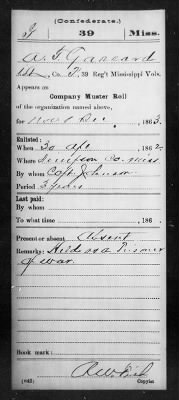 (Confederate.)
G 39 Miss.
A. G. Garrard
Co. B, 39 Reg't Mississippi Vols.
Appears on
Company Muster Roll
of the organization named above,
for Nov & Dec, 1863.
Enlisted:
When 30 Apr, 1862.
Where Simpson Co. Miss.
By whom Capt. Johnson
Period 3 years
Last paid:
By whom
To what time , 186 .
Present or absent Absent
Remarks: Held as a Prisoner
of war.
Book mark:
(642)
Copyist.